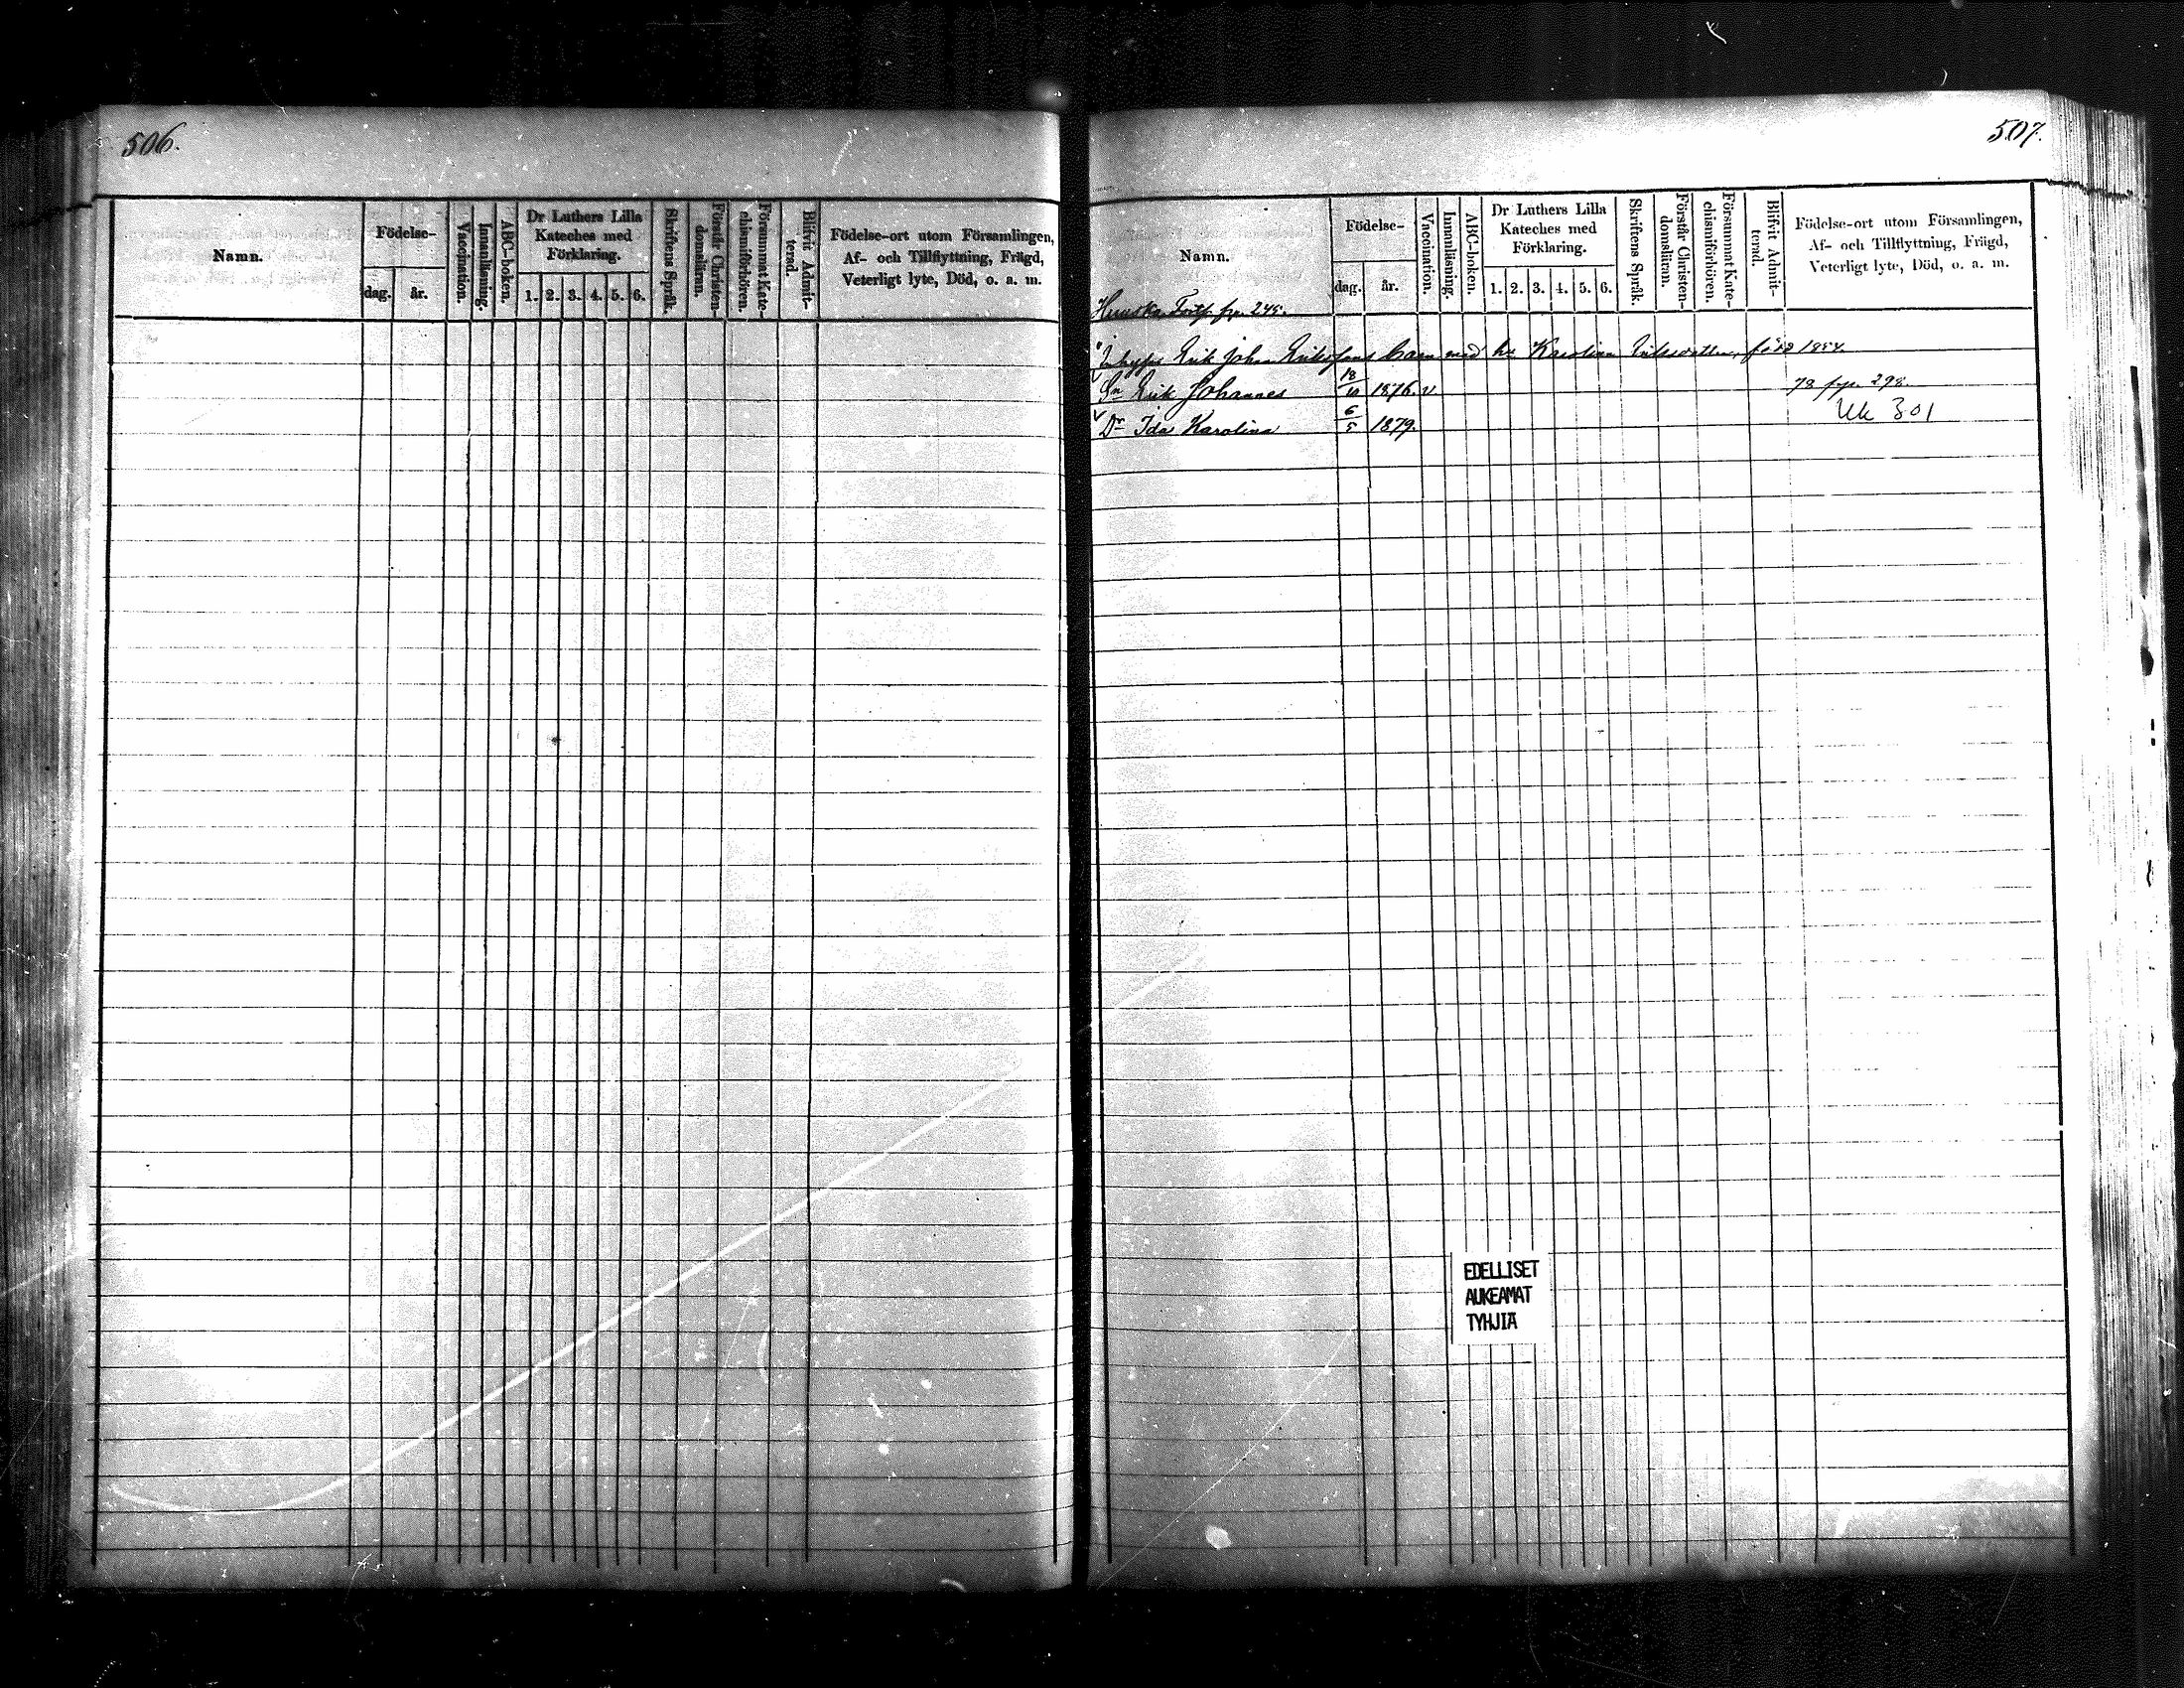 506.
Namn.
Födelse-
dag.
år.
Vaccination.
Innanläsning.
ABC-boken.
Dr Luthers Lilla
Kateches med
Förklaring.
1. 2. 3. 4. 5. 6.
Skriftens Språk.
Förstår Christen-
domsläran.
Försummat Kate-
chismiförhören.
Blifvit Admit-
terad.
Födelse-ort utom Församlingen,
Af- och Tillflyttning, Frägd,
Veterligt lyte, Död, o. a. m.
507.
Namn.
Födelse-
dag.
år.
Vaccination.
Innanläsning.
ABC-boken.
Dr Luthers Lilla
Kateches med
Förklaring.
1. 2. 3. 4. 5. 6.
Skriftens Språk.
Förstår Christen-
domsläran.
Försummat Kate-
chismiförhören.
Blifvit Admit-
terad.
Födelse-ort utom Församlingen,
Af- och Tillflyttning, Frägd,
Veterligt lyte, Död, o. a. m.
Fortf. fr. 245.
Erik Johan Erikssons barn med h. Karolina Eriksdotter, född 1854.
Sn Erik Johannes 18/10 1876. v. 78 fr. p. 298.
Dr Ida Karolina 6/5 1879. Uk 301
EDELLISET
AUKEAMAT
TYHJIÄ